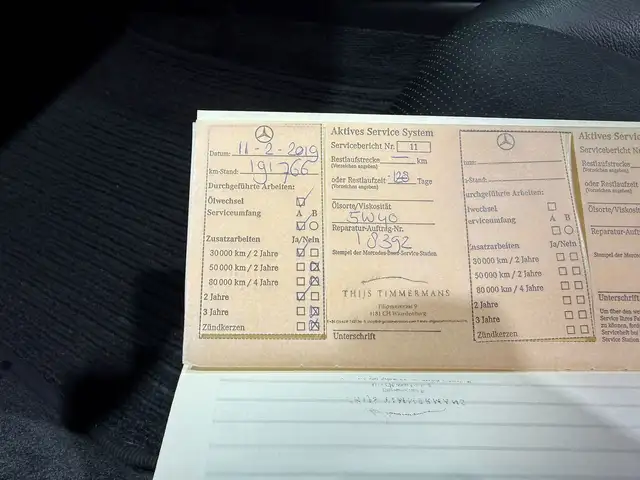 Datum: 11-2-2019
km-Stand: 191766
Durchgeführte Arbeiten:
Ölwechsel
Serviceumfang A B
Zusatzarbeiten Ja/Nein
30 000 km / 2 Jahre
50 000 km / 2 Jahre
80 000 km / 4 Jahre
2 Jahre
3 Jahre
Zündkerzen
Aktives Service System
Servicebericht Nr. 11
Restlaufstrecke — km
(Vorzeichen angeben)
oder Restlaufzeit -128 Tage
(Vorzeichen angeben)
Ölsorte/Viskosität
5W40
Reparatur-Auftrag-Nr.
18392
Stempel der Mercedes-Benz-Service-Station
THIJS TIMMERMANS
Unterschrift
tum:
-Stand:
urchgeführte Arbeiten:
lwechsel
erviceumfang A B
usatzarbeiten Ja/Nein
30 000 km / 2 Jahre
50 000 km / 2 Jahre
80 000 km / 4 Jahre
2 Jahre
3 Jahre
Zündkerzen
Aktives Serv
Servicebericht N
Restlaufstrecke
(Vorzeichen angeben)
oder Restlaufzeit
(Vorzeichen angeben)
Ölsorte/Viskosit
Reparatur-Auftr
Stempel der Merced
Unterschrift